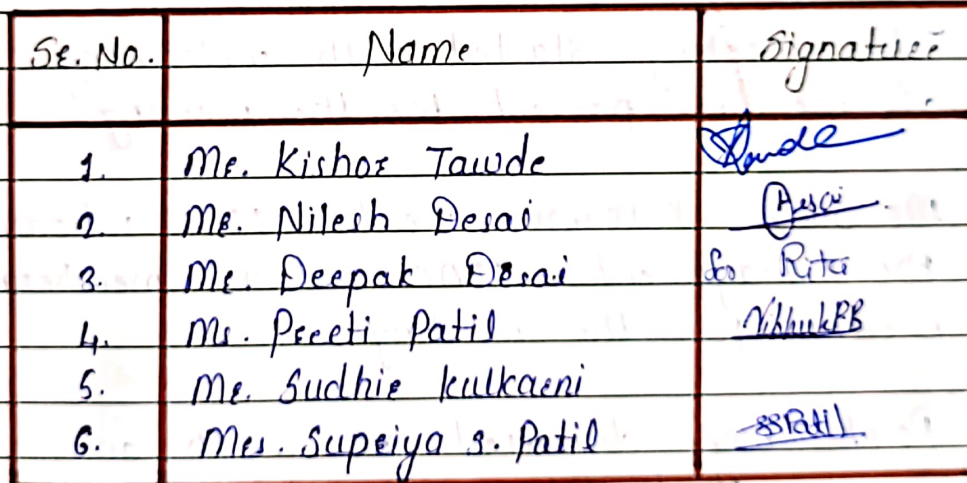 Sr. No. Name Signature
1. Mr. Kishor Tawde Tawde
2. Mr. Nilesh Desai Desai
3. Mr. Deepak Desai for Rita
4. Ms. Preeti Patil
5. Mr. Sudhir Kulkarni
6. Mrs. Supriya S. Patil SSPatil